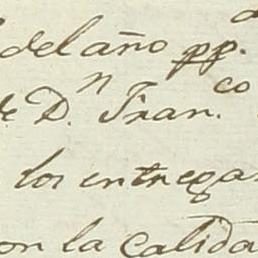 del año pp.
de D.n Fran.co
los entrega
on la calida